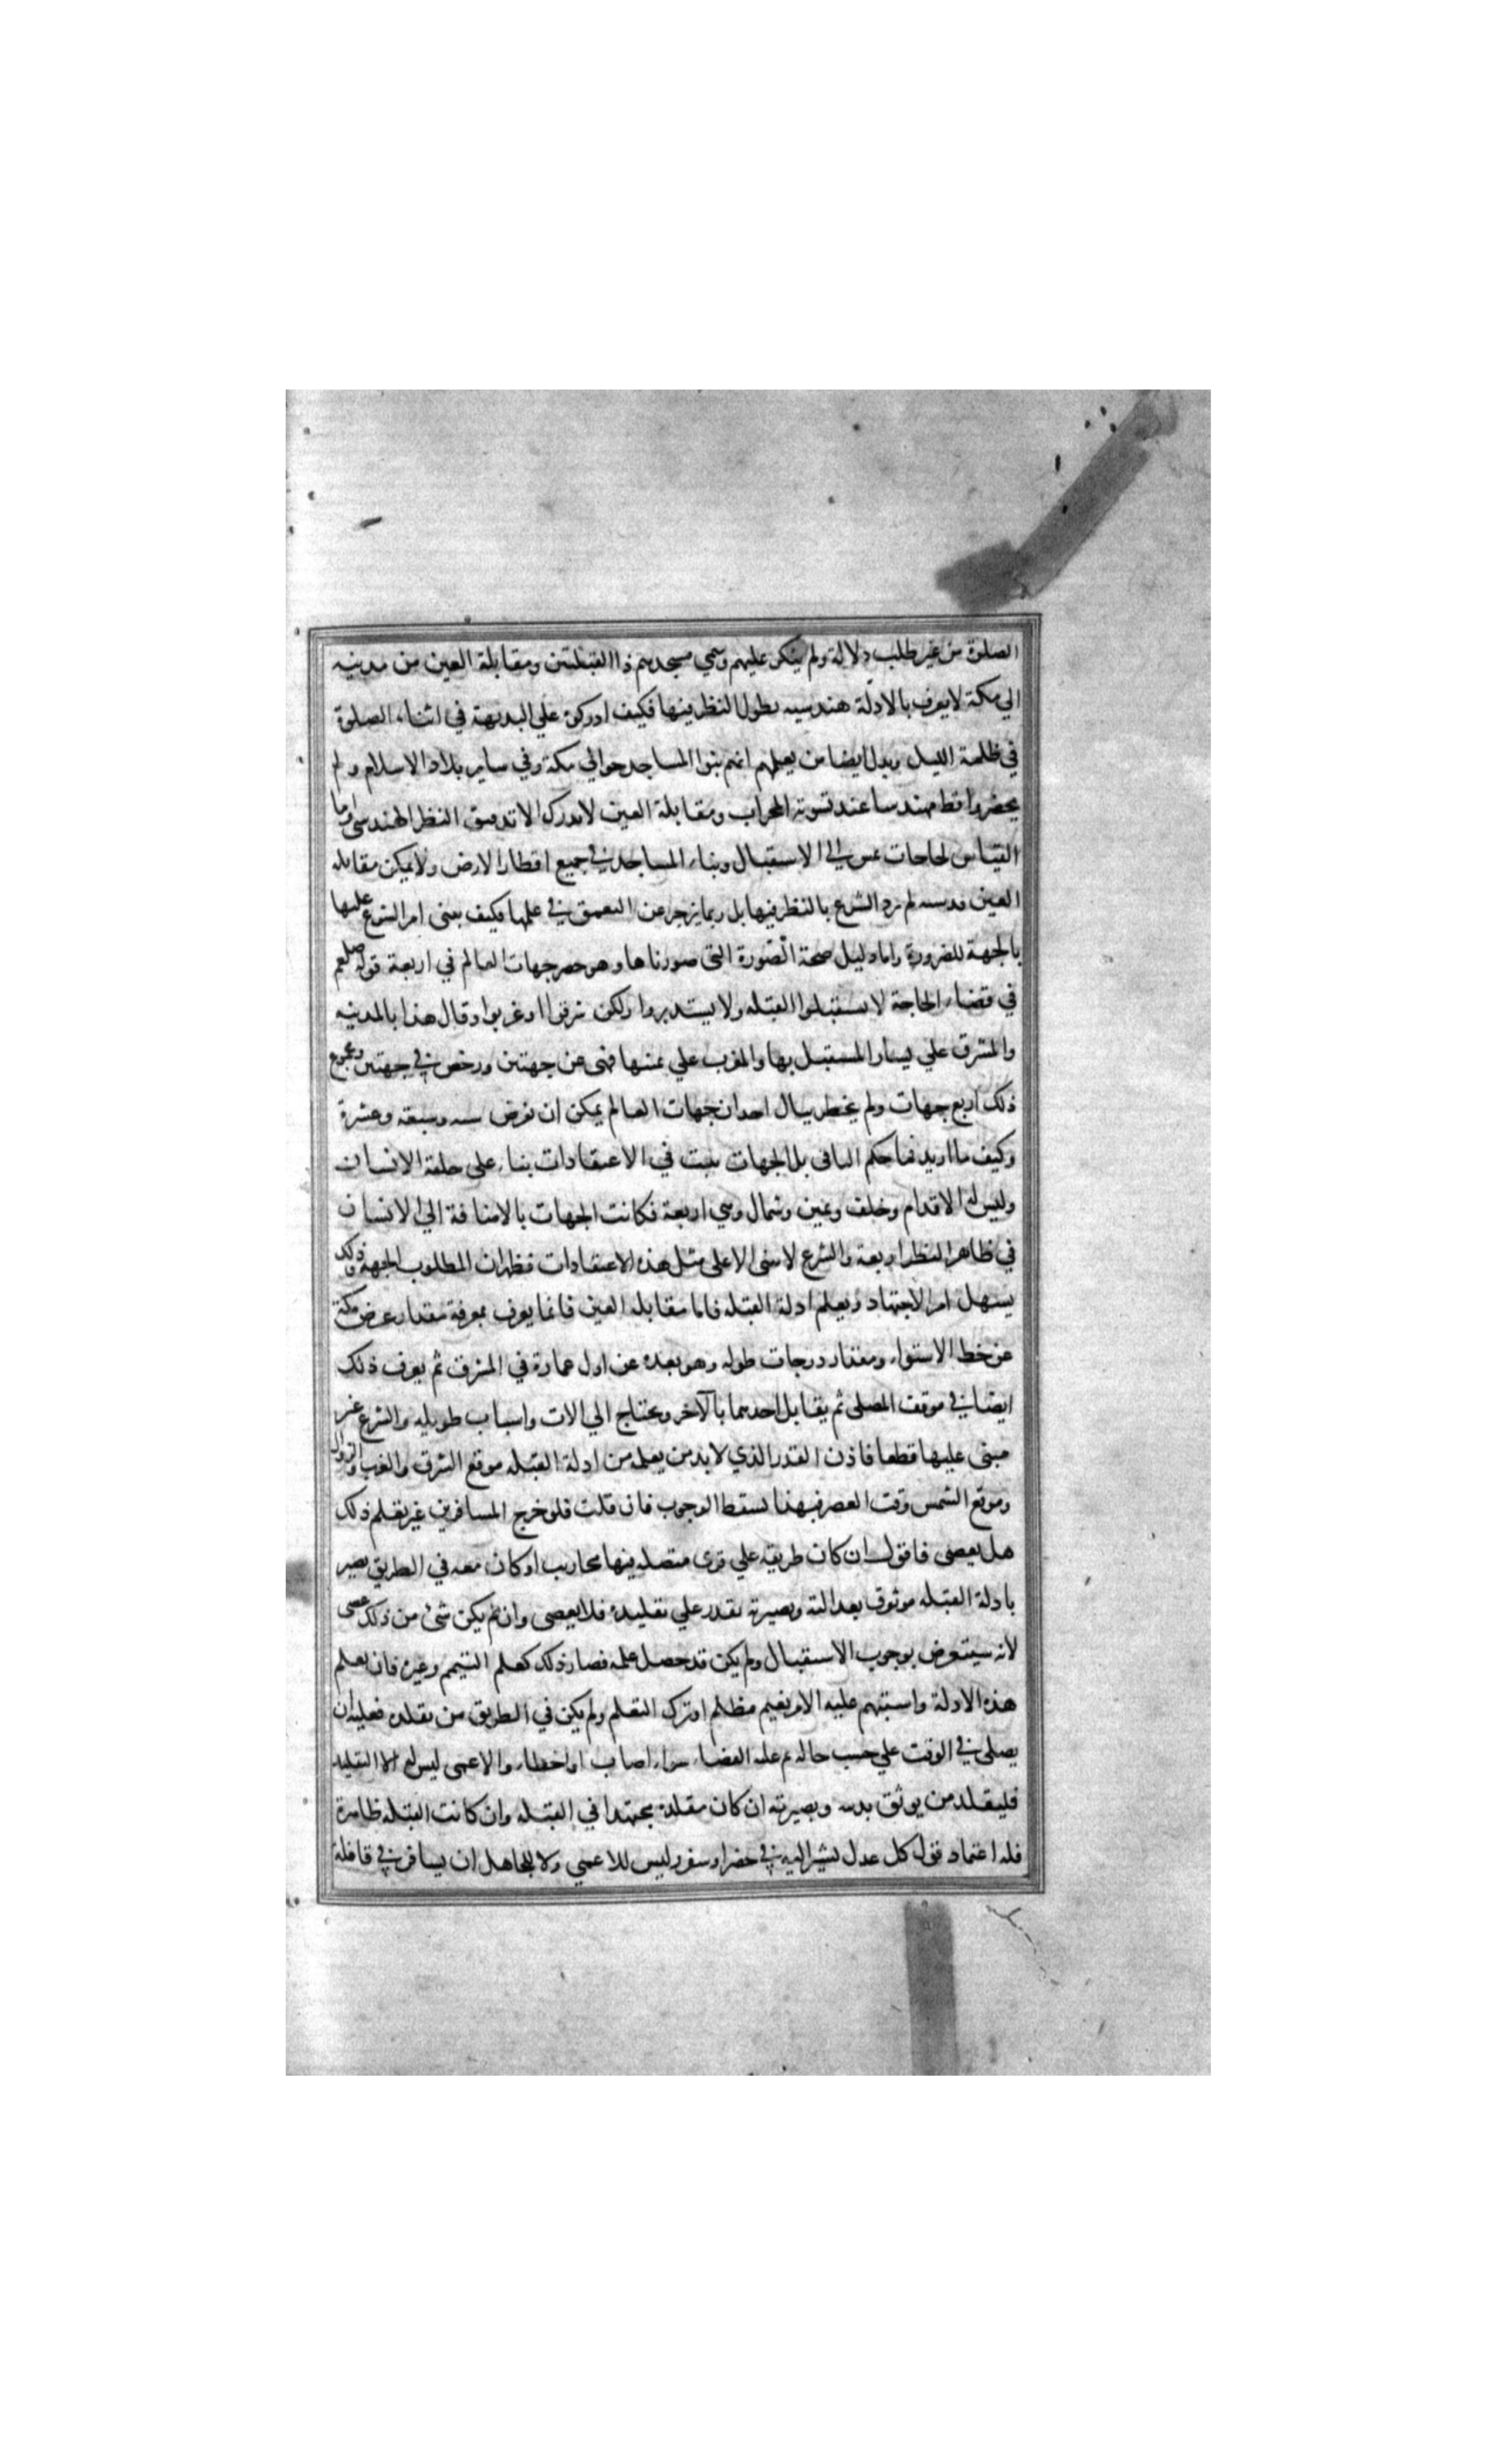 الصلوة من غير طلب دلالة ولم ينكر عليهم وسمي مسجدهم ذا القبلتين ومقابلة العين من مدينه
الي مكة لا يعرف بالادلة هندسيه يطول النظر فيها فكيف ادركوه علي البديهة في اثناء الصلوة
في ظلمة الليل ويدل ايضا من يعلمهم انهم بنوا المساجد حوالي مكة وفي ساير بلاد الاسلام ولم
يحضروا قط مهندسا عند تسوية المحراب ومقابلة العين لا يدرك الا بتدقيق النظر الهندسي واما
القياس لحاجات الي الاستقبال وبناء المساجد في جميع اقطار الارض ولا يمكن مقابله
العين لم يرد الشرع بالنظر فيها بل ربما يزجر عن التعمق في علمها فكيف يبنى امر الشرع عليها
بالجهة للضرورة واما دليل صحة الصورة التي صورناها وهو حصر جهات العالم في اربعة قوله صلعم
في قضاء الحاجة لا تستقبلوا القبله ولا يستدبروا ولكن شرقوا او غربوا وقال هذا بالمدينه
والمشرق علي يسار المستقبل بها والمغرب علي يمينها فنهى عن جهتين ورخص في جهتين ومجموع
ذلك اربع جهات ولم يخطر ببال احد ان جهات العالم يمكن ان تفرض سته وسبعة وعشرة
وكيف ما اريد فما حكم الباقي بل الجهات يثبت في الاعتقادات بناء علي خلقة الانسان
وليس له الا قدام وخلف ويمين وشمال وهي اربعة فكانت الجهات بالاضافة الي الانسان
في ظاهر النظر اربعة والشرع لا يبنى الا على مثل هذه الاعتقادات فظهر ان المطلوب الجهة وذلك
يسهل امر الاجتهاد ويعلم ادلة القبله فاما مقابله العين فانما يعرف بمعرفة مقدار عرض مكة
عن خط الاستواء ومقدار درجات طوله وهو بعده عن اول عمارة في المشرق ثم يعرف ذلك
ايضا في موقف المصلى ثم يقابل احدهما بالآخر ويحتاج الي الات واسباب طويله والشرع غير
مبنى عليها قطعا فاذن القدر الذي لا بد من يعلمه من ادلة القبله موقع الشرق والغرب والزوال
وموقع الشمس وقت العصر فبهذا يسقط الوجوب فان قلت فلو خرج المسافر من غير تعلم ذلك
هل يعصى فاقول ان كان طريقه علي قرى متصله فيها محاريب او كان معه في الطريق بصير
بادلة القبله موثوق بعدالته وبصيرته يقدر علي تقليده فلا يعصى وان لم يكن شئ من ذلك عصى
لأنه سيتعرض بوجوب الاستقبال ولم يكن قد حصل علمه فصار ذلك كعلم التيمم وغيره فان يعلم
هذه الادلة واستبهم عليه الامر بغيم مظلم او ترك التعلم ولم يكن في الطريق من يقلده فعليه ان
يصلى في الوقت علي حسب حاله ثم عليه القضاء سواء اصاب او اخطاء والاعمى ليس له الا التقليد
فليقلد من يوثق بدينه وبصيرته ان كان مقلده مجتهدا في القبله وان كانت القبله ظاهرة
فله اعتماد قول كل عدل يشير اليه في حضر او سفر وليس للاعمي ولا للجاهل ان يسافر في قافلة